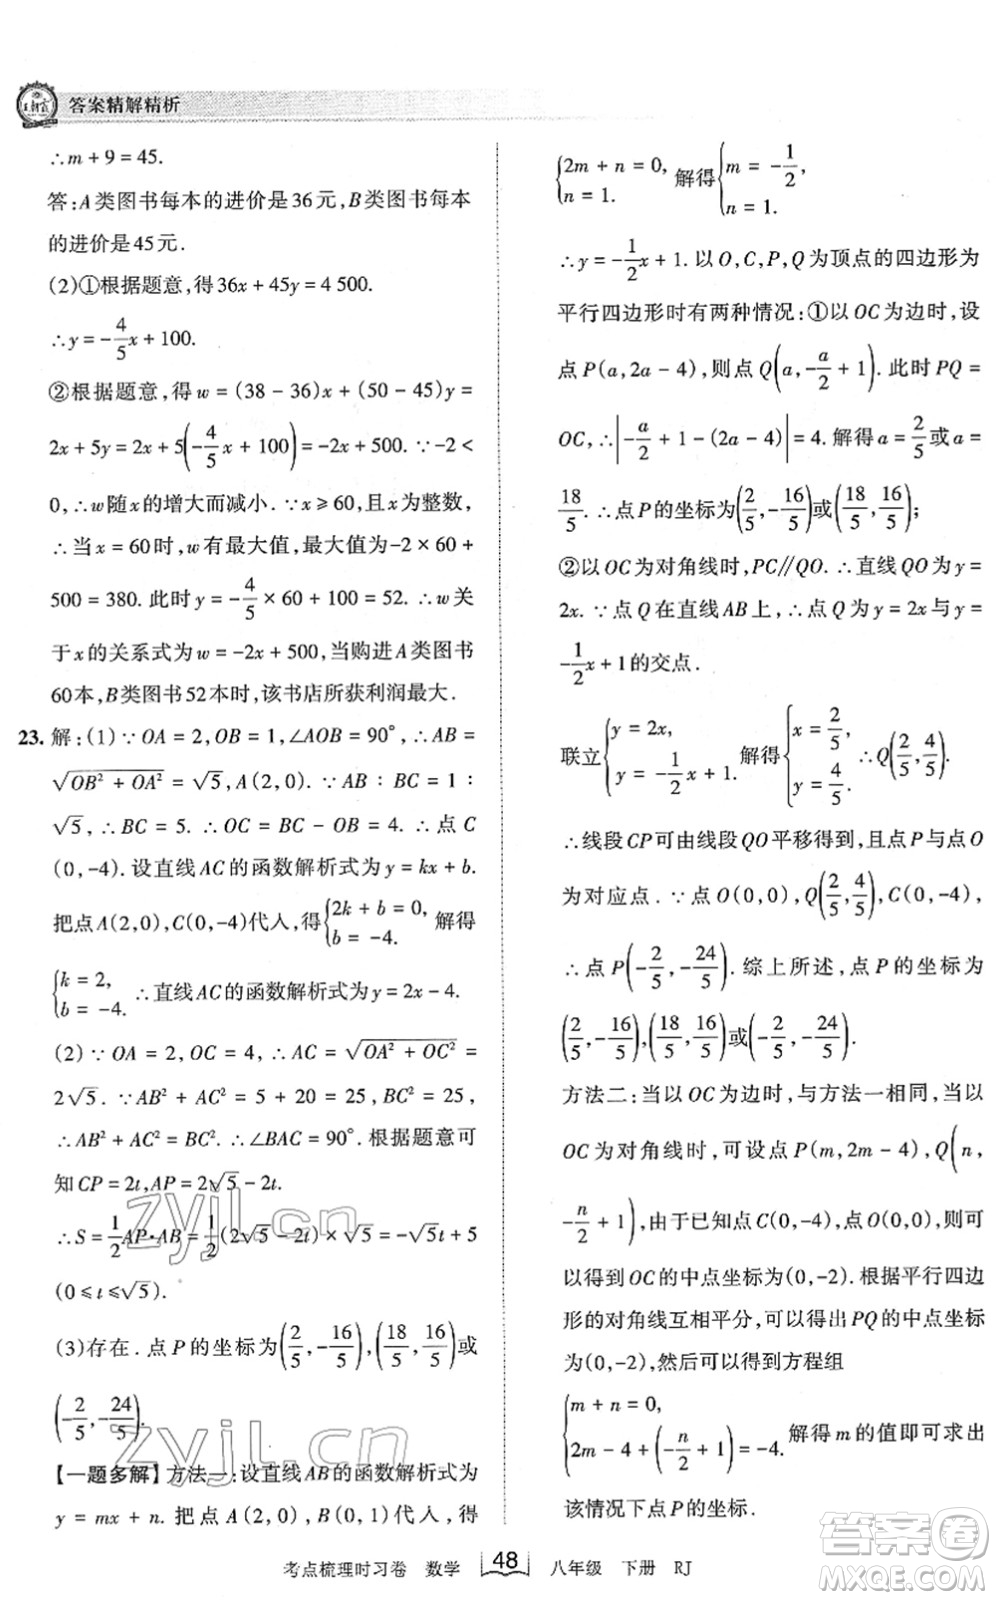 答案精解精析
∴m + 9 = 45.
答:A类图书每本的进价是36元,B类图书每本
的进价是45元.
(2)①根据题意,得36x + 45y = 4 500.
∴y = -4/5x + 100.
②根据题意,得w = (38 - 36)x + (50 - 45)y =
2x + 5y = 2x + 5(-4/5x + 100) = -2x + 500. ∵ -2 <
0,∴w随x的增大而减小. ∵x ≥ 60,且x为整数,
∴当x = 60时,w有最大值,最大值为-2 × 60 +
500 = 380. 此时y = -4/5 × 60 + 100 = 52. ∴w关
于x的关系式为w = -2x + 500,当购进A类图书
60本,B类图书52本时,该书店所获利润最大.
23. 解:(1)∵OA = 2,OB = 1,∠AOB = 90°,∴AB =
√(OB² + OA²) = √5,A(2,0). ∵AB : BC = 1 :
√5,∴BC = 5. ∴OC = BC - OB = 4. ∴点C
(0,-4). 设直线AC的函数解析式为y = kx + b.
把点A(2,0),C(0,-4)代入,得{2k + b = 0, b = -4. 解得
{k = 2, b = -4. ∴直线AC的函数解析式为y = 2x - 4.
(2)∵OA = 2,OC = 4,∴AC = √(OA² + OC²) =
2√5. ∵AB² + AC² = 5 + 20 = 25,BC² = 25,
∴AB² + AC² = BC². ∴∠BAC = 90°. 根据题意可
知CP = 2t,AP = 2√5 - 2t.
∴S = 1/2AP·AB = 1/2(2√5 - 2t) × √5 = -√5t + 5
(0 ≤ t ≤ √5).
(3)存在. 点P的坐标为(2/5,-16/5),(18/5,16/5)或
(-2/5,-24/5).
【一题多解】方法一:设直线AB的函数解析式为
y = mx + n. 把点A(2,0),B(0,1)代入,得
{2m + n = 0, n = 1. 解得{m = -1/2, n = 1.
∴y = -1/2x + 1. 以O,C,P,Q为顶点的四边形为
平行四边形时有两种情况:①以OC为边时,设
点P(a,2a - 4),则点Q(a,-a/2 + 1). 此时PQ =
OC,∴|-a/2 + 1 - (2a - 4)| = 4. 解得a = 2/5或a =
18/5. ∴点P的坐标为(2/5,-16/5)或(18/5,16/5);
②以OC为对角线时,PC∥QO. ∴直线QO为y =
2x. ∵点Q在直线AB上,∴点Q为y = 2x与y =
-1/2x + 1的交点.
联立{y = 2x, y = -1/2x + 1. 解得{x = 2/5, y = 4/5. ∴Q(2/5,4/5).
∴线段CP可由线段QO平移得到,且点P与点O
为对应点. ∵点O(0,0),Q(2/5,4/5),C(0,-4),
∴点P(-2/5,-24/5). 综上所述,点P的坐标为
(2/5,-16/5),(18/5,16/5)或(-2/5,-24/5).
方法二:当以OC为边时,与方法一相同,当以
OC为对角线时,可设点P(m,2m - 4),Q(n,
-n/2 + 1),由于已知点C(0,-4),点O(0,0),则可
以得到OC的中点坐标为(0,-2). 根据平行四边
形的对角线互相平分,可以得出PQ的中点坐标
为(0,-2),然后可以得到方程组
{m + n = 0, 2m - 4 + (-n/2 + 1) = -4. 解得m的值即可求出
该情况下点P的坐标.
zyjl.cn
zyjl.cn
答案卷
MXQE.COM
考点梳理时习卷 数学 48 八年级 下册 RJ